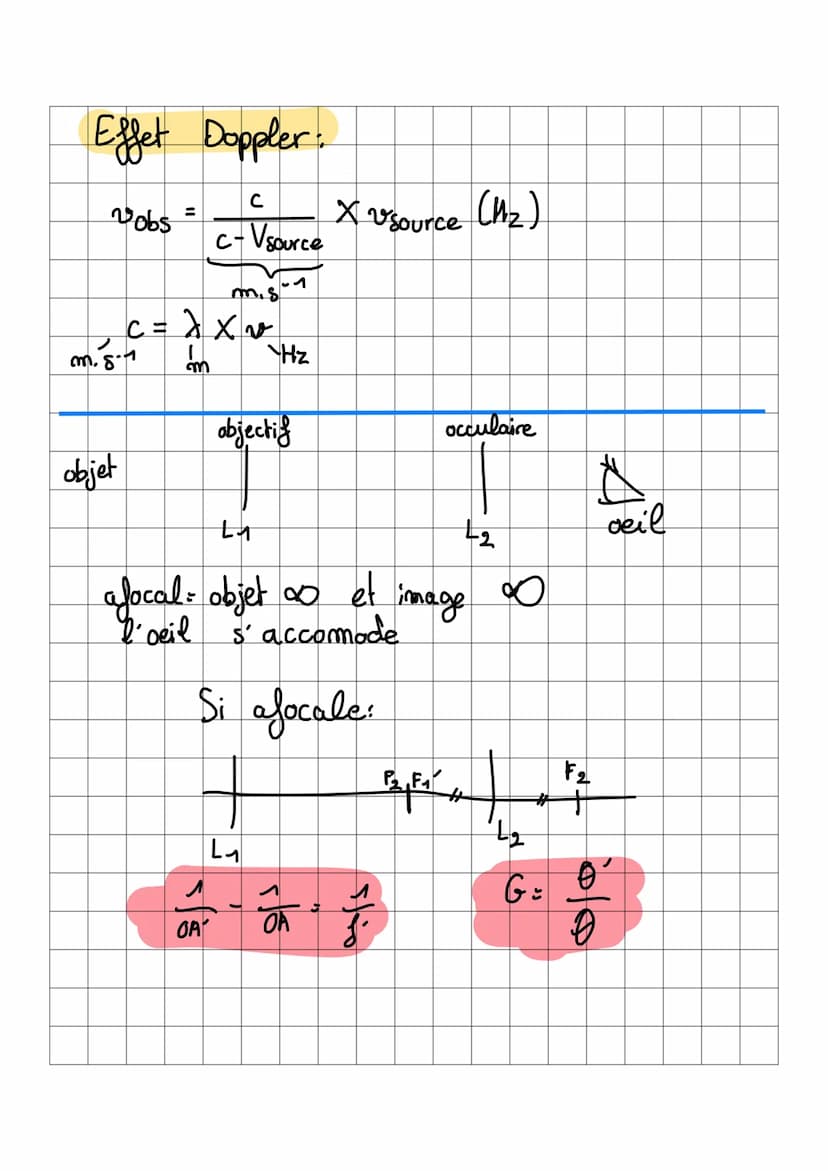 Effet Doppler:
νobs = c / (c - Vsource) X νsource (Hz)
m.s⁻¹
c = λ X ν
m.s⁻¹ m Hz
objectif occulaire
objet
L1 L2 oeil
afocal = objet ∞ et image ∞
l'oeil s'accomode
Si afocale:
F2 F1' F2
L1 L2
1/OA' - 1/OA = 1/f' G = θ'/θ